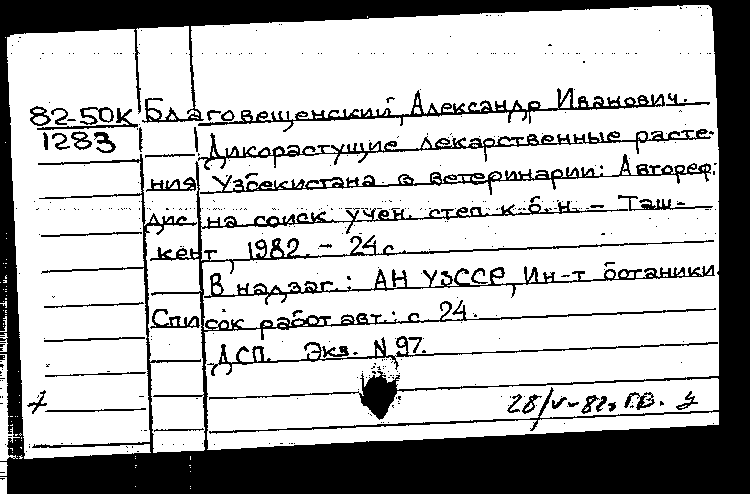 82-50К Благовещенский, Александр Иванович.
1283 Дикорастущие лекарственные расте-
ния Узбекистана в ветеринарии: Автореф.
дис. на соиск. учен. степ. к.б.н. - Таш-
кент, 1982. - 24 с.
В надзаг.: АН УзССР, Ин-т ботаники.
Список работ авт.: с. 24.
ДСП. Экз. N 97.
28/V-82г